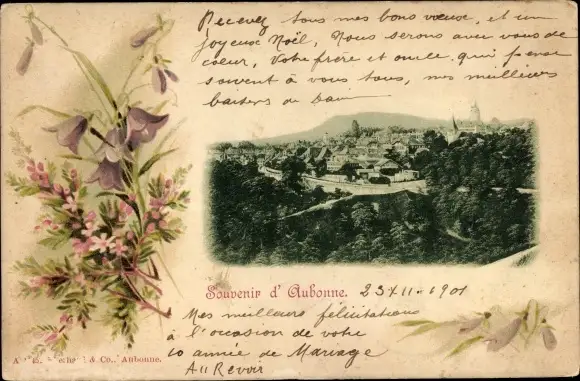 Recevez tous mes bons vœux, et un
joyeux Noël, Nous serons avec vous de
cœur, Votre frère et oncle qui pense
souvent à vous tous, mes meilleurs
baisers de
Souvenir d' Aubonne. 23 XII - 1901
Mes meilleurs félicitations
à l'occasion de votre
10 année de Mariage
Au Revoir
& Co., Aubonne.